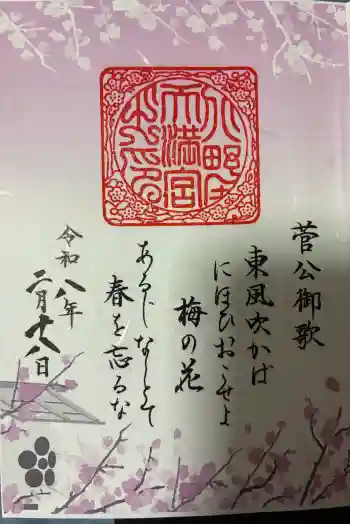 菅公御歌
東風吹かば
にほひおこせよ
梅の花
あるじなしとて
春を忘るな
令和八年
二月十八日